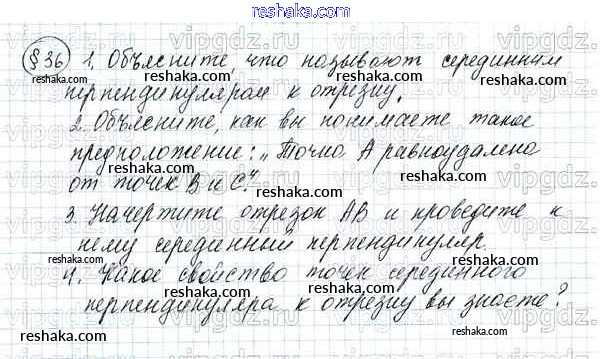 §36 1. Объясните, что называют серединным
перпендикуляром к отрезку.
2. Объясните, как вы понимаете такое
предположение: „Точка А равноудалена
от точек В и С".
3. Начертите отрезок АВ и проведите к
нему серединный перпендикуляр.
4. Какое свойство точек серединного
перпендикуляра к отрезку вы знаете?
reshaka.com
reshaka.com
reshaka.com
reshaka.com
reshaka.com
reshaka.com
reshaka.com
reshaka.com
reshaka.com
reshaka.com
reshaka.com
reshaka.com
reshaka.com